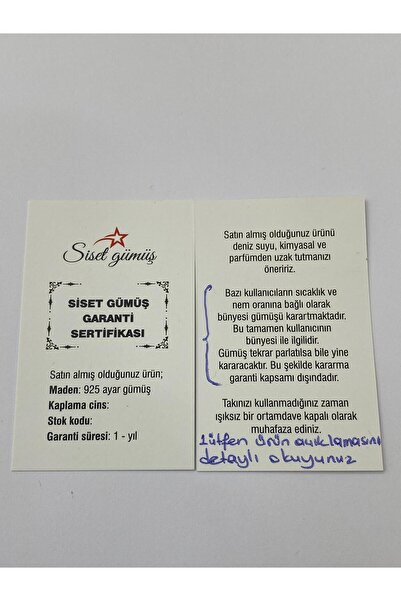 Siset gümüş
SİSET GÜMÜŞ
GARANTİ
SERTİFİKASI
Satın almış olduğunuz ürün;
Maden: 925 ayar gümüş
Kaplama cins:
Stok kodu:
Garanti süresi: 1 - yıl
Satın almış olduğunuz ürünü
deniz suyu, kimyasal ve
parfümden uzak tutmanızı
öneririz.
Bazı kullanıcıların sıcaklık ve
nem oranına bağlı olarak
bünyesi gümüşü karartmaktadır.
Bu tamamen kullanıcının
bünyesi ile ilgilidir.
Gümüş tekrar parlatılsa bile yine
kararacaktır. Bu şekilde kararma
garanti kapsamı dışındadır.
Takınızı kullanmadığınız zaman
ışıksız bir ortamdave kapalı olarak
muhafaza ediniz.
Lütfen ürün açıklamasını
detaylı okuyunuz